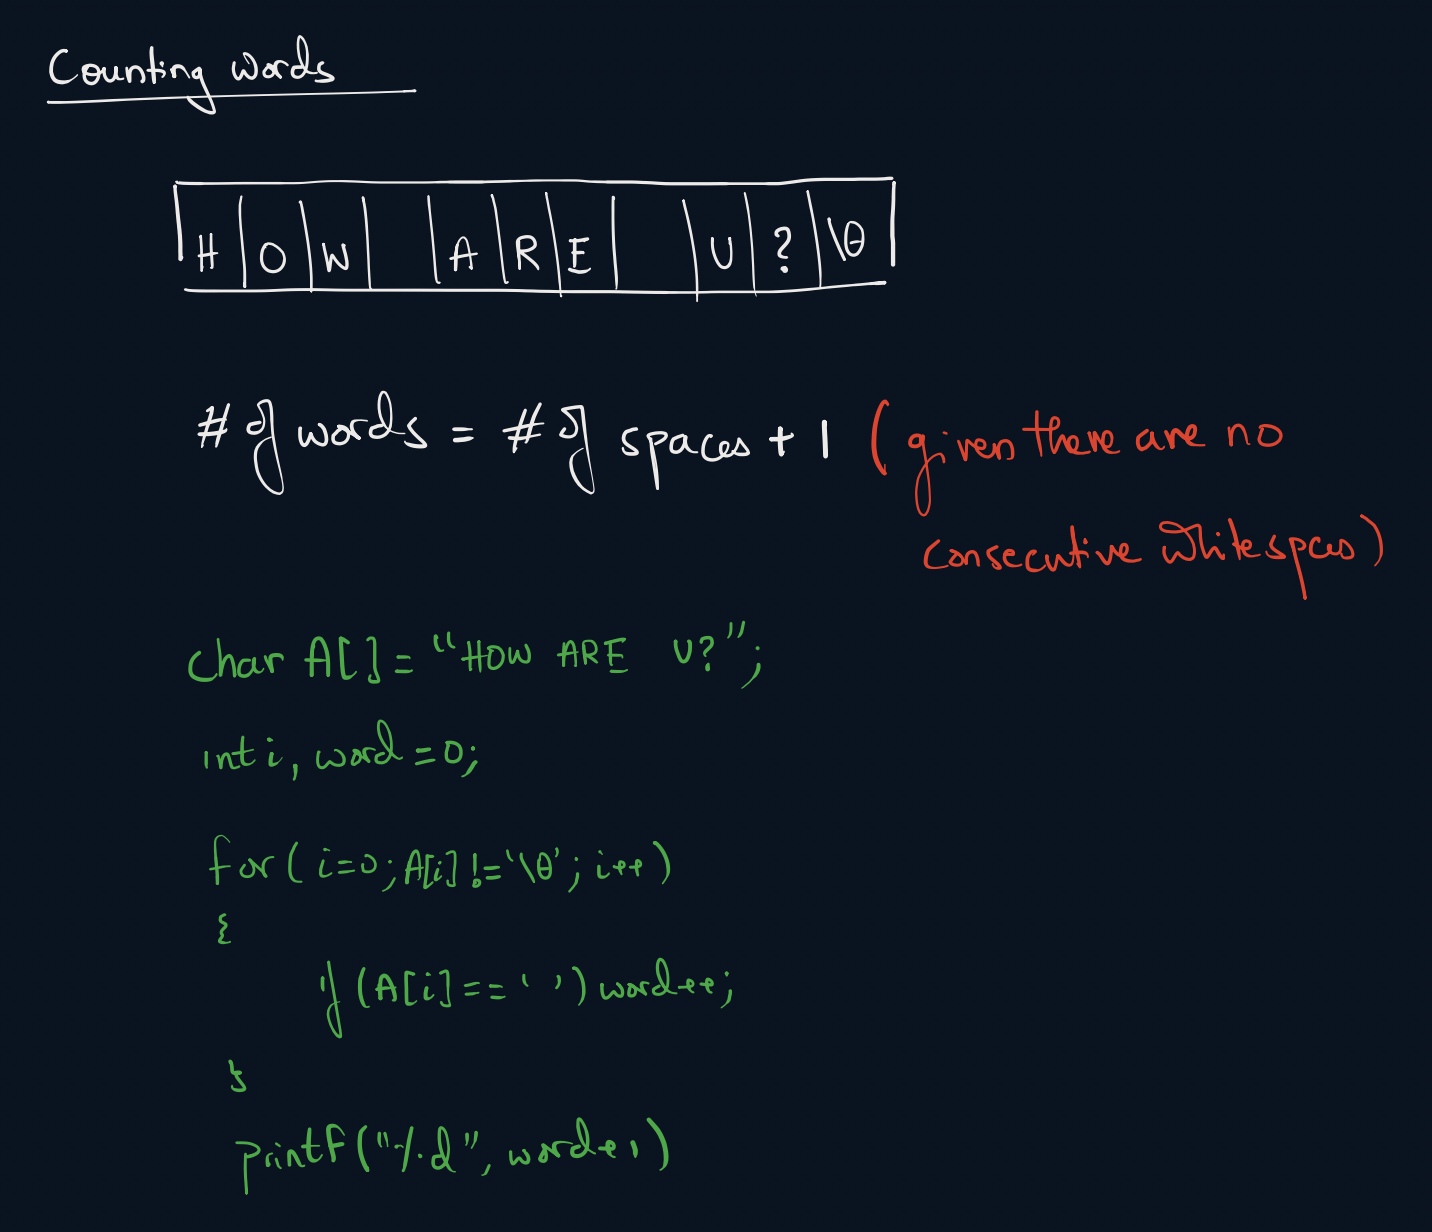 Counting words
H O W A R E U ? \0
# of words = # of spaces + 1 (given there are no
consecutive whitespces)
char A[] = "HOW ARE U?";
int i, word = 0;
for ( i=0; A[i] != '\0'; i++)
{
if (A[i] == ' ') word++;
}
printf("%d", word+1)